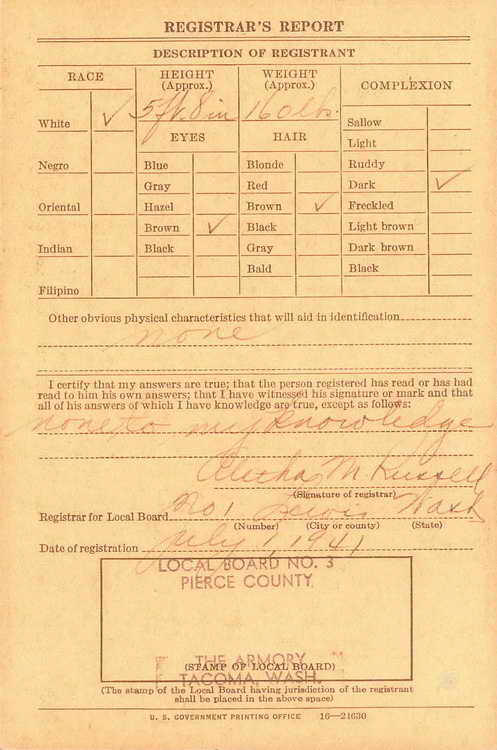 REGISTRAR'S REPORT
DESCRIPTION OF REGISTRANT
RACE
HEIGHT
(Approx.)
WEIGHT
(Approx.)
COMPLEXION
White ✓
5 ft. 8 in
160 lbs.
EYES
HAIR
Sallow
Light
Negro
Blue
Blonde
Ruddy
Gray
Red
Dark ✓
Oriental
Hazel
Brown ✓
Freckled
Brown ✓
Black
Light brown
Indian
Black
Gray
Dark brown
Bald
Black
Filipino
Other obvious physical characteristics that will aid in identification
none
I certify that my answers are true; that the person registered has read or has had
read to him his own answers; that I have witnessed his signature or mark and that
all of his answers of which I have knowledge are true, except as follows:
none to my knowledge
Aletha M Russell
(Signature of registrar)
Registrar for Local Board No 1 Lewis Wash
(Number) (City or county) (State)
Date of registration July 1, 1941
LOCAL BOARD NO. 3
PIERCE COUNTY
THE ARMORY
(STAMP OF LOCAL BOARD)
TACOMA, WASH.
(The stamp of the Local Board having jurisdiction of the registrant
shall be placed in the above space)
U. S. GOVERNMENT PRINTING OFFICE 16—21630